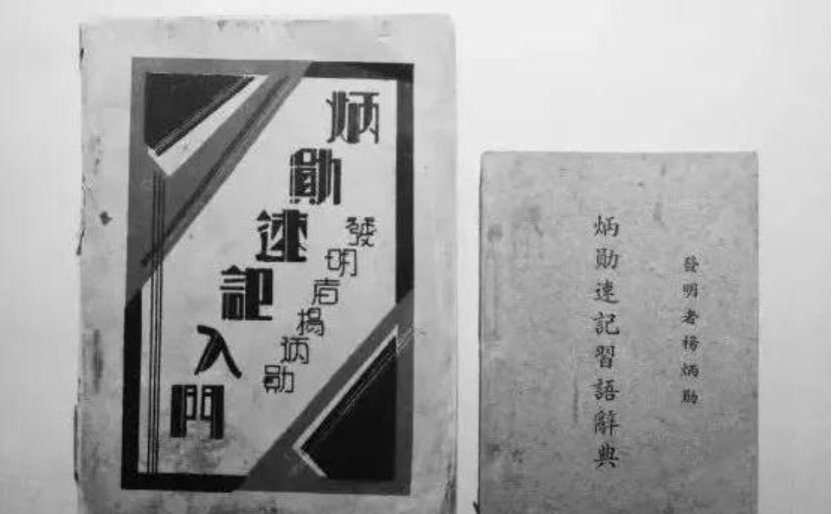 炳勛速記入門
發明者楊炳勛
炳勛速記習語辭典
發明者楊炳勛